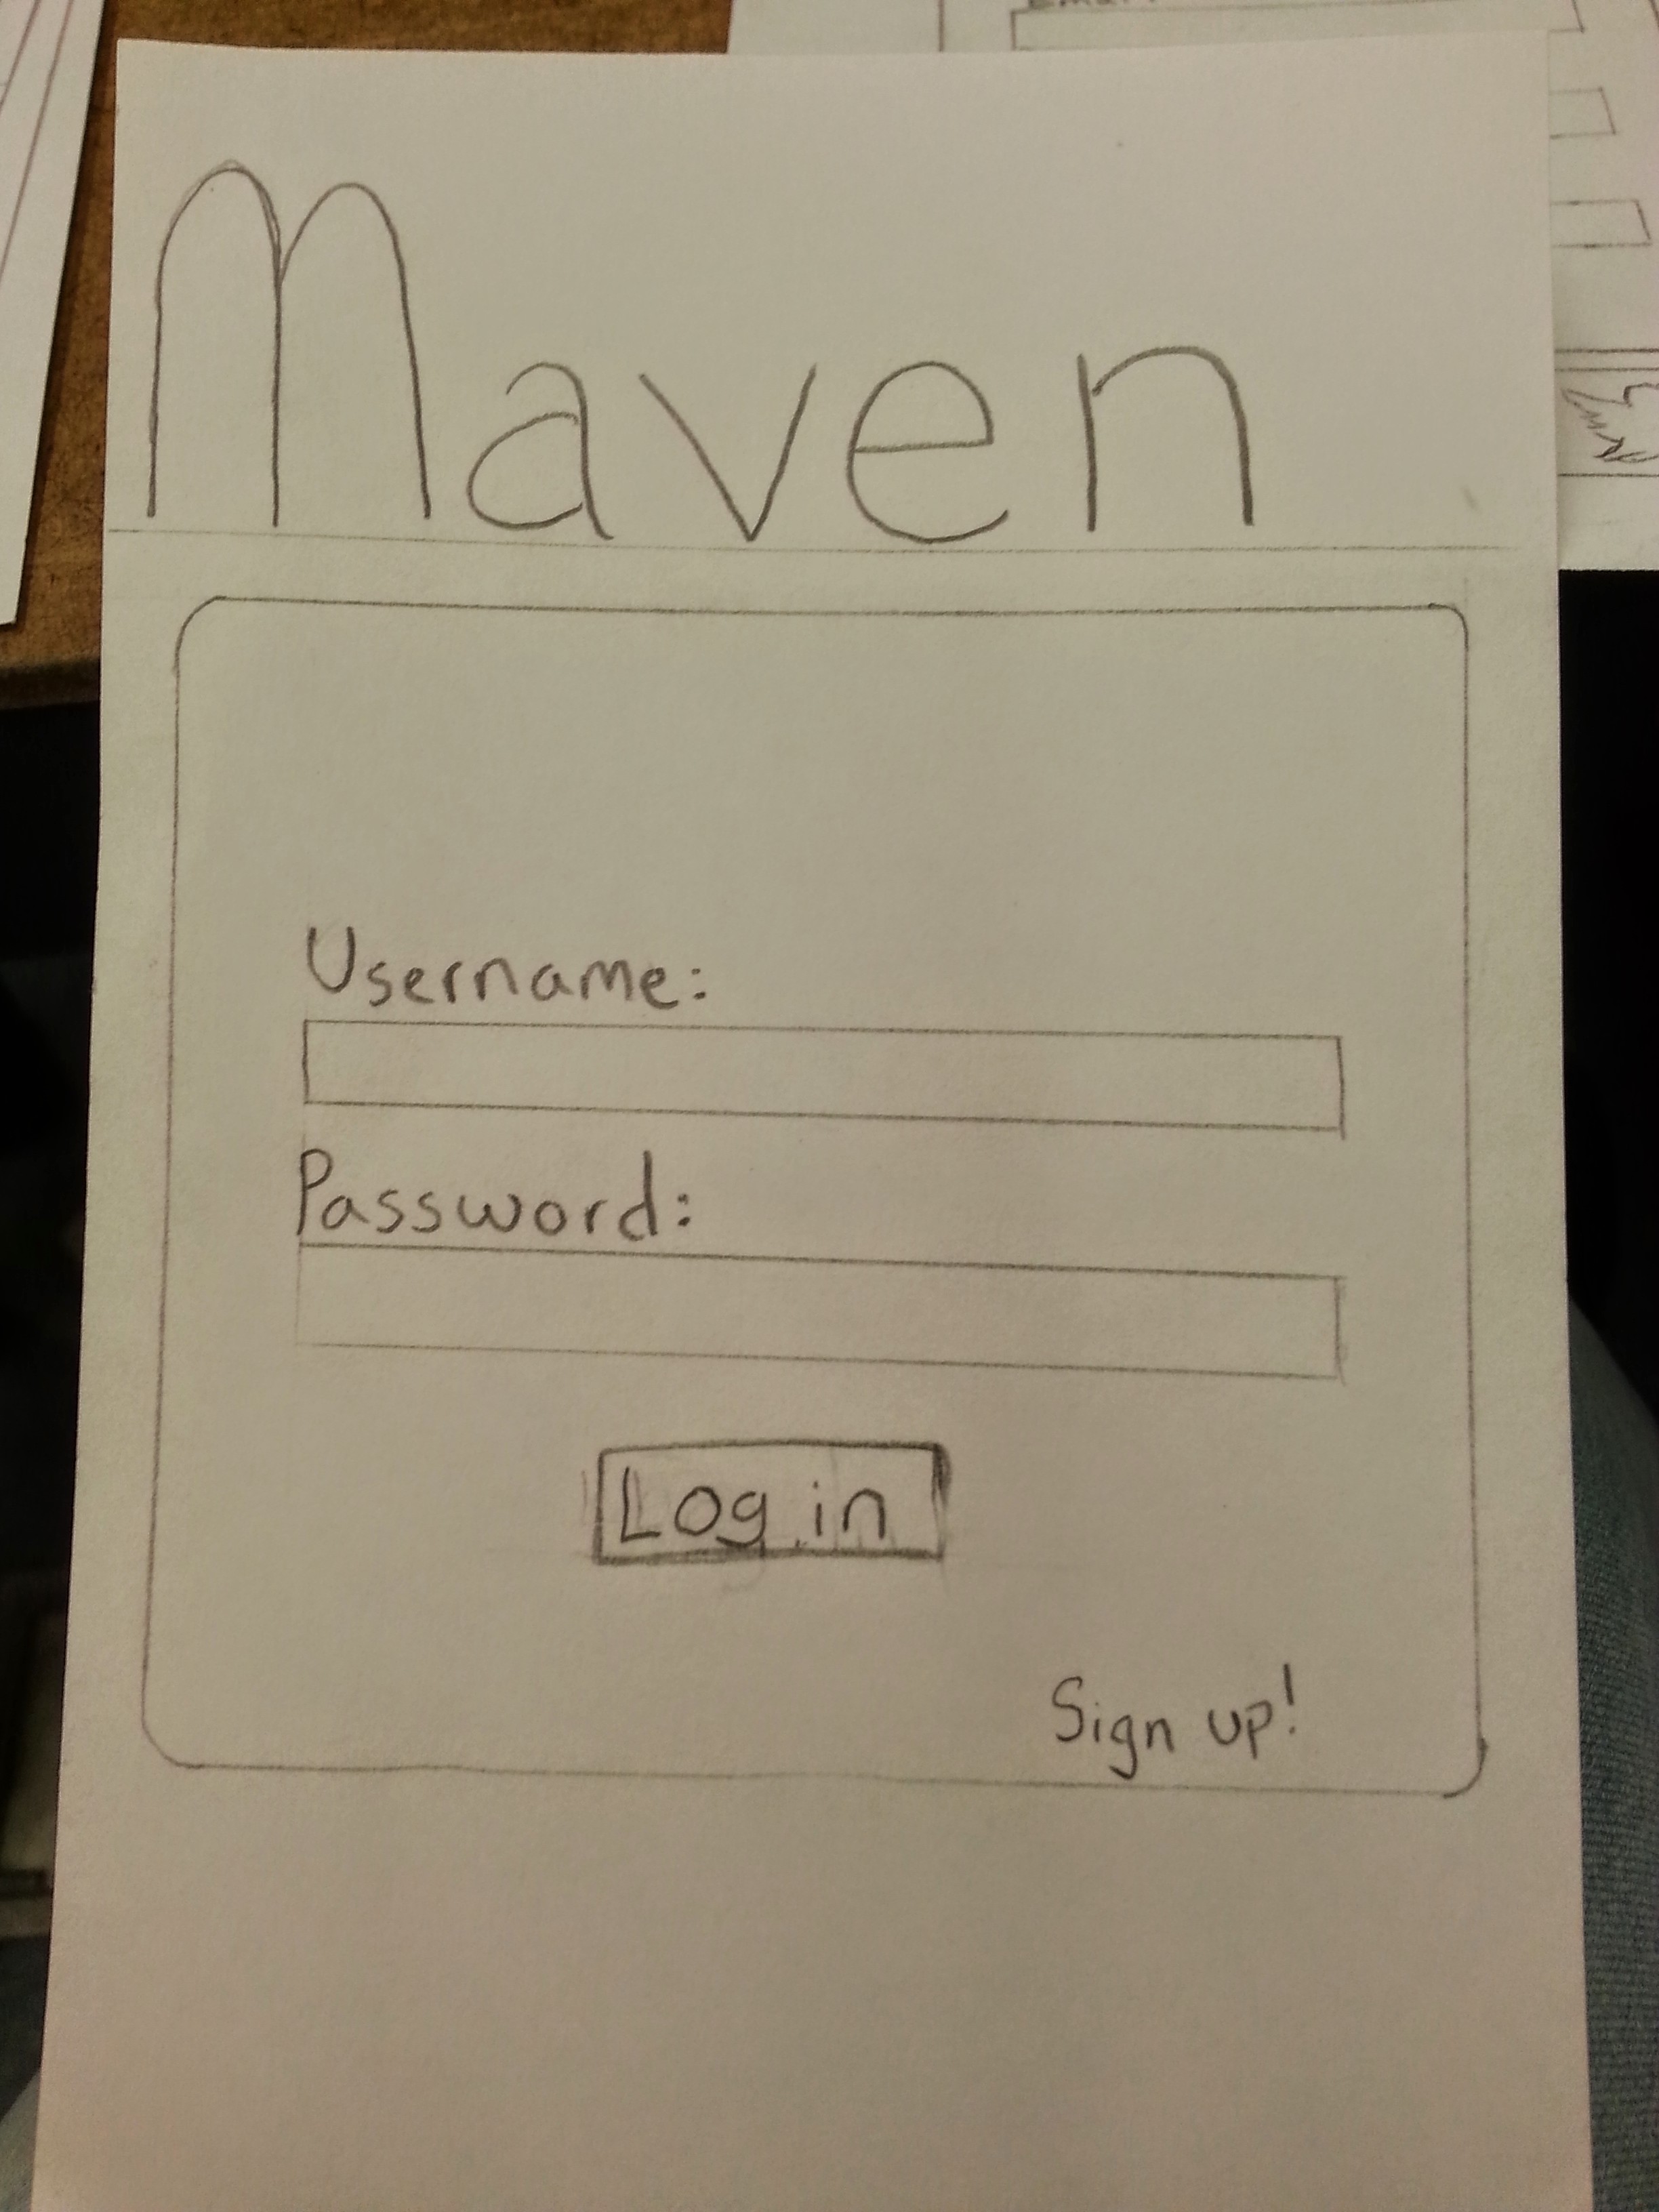 Maven
Username:
Password:
Log in
Sign up!